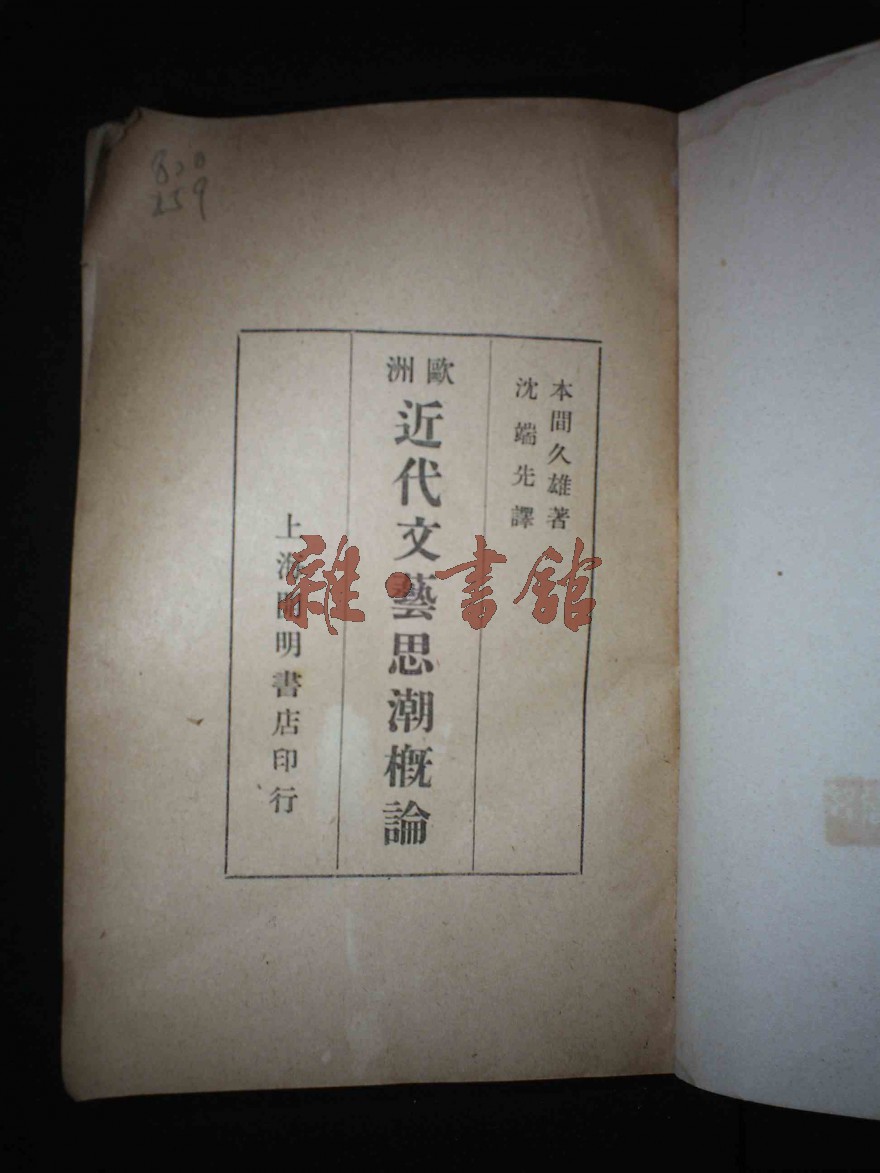 820
259
本間久雄著
沈端先譯
歐洲
近代文藝思潮概論
上海開明書店印行
雜·書館